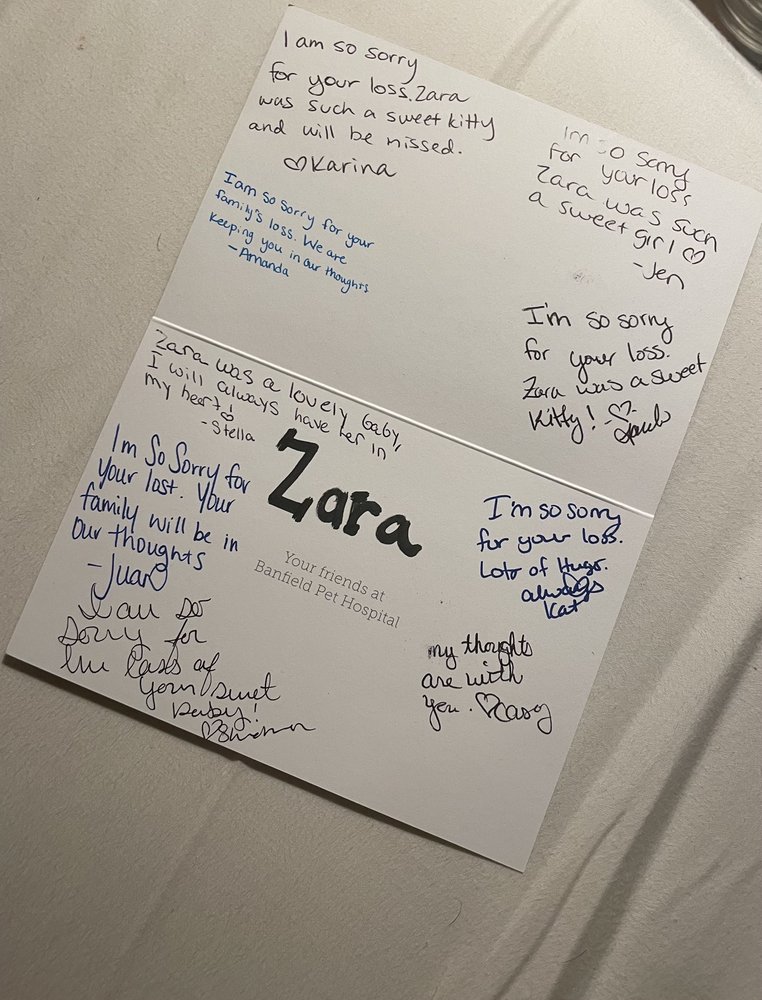 I am so sorry
for your loss. Zara
was such a sweet kitty
and will be missed.
♡Karina
Im so sorry
for your loss
Zara was such
a sweet girl ♡
-Jen
I am so sorry for your
family's loss. We are
keeping you in our thoughts
-Amanda
I'm so sorry
for your loss.
Zara was a sweet
kitty! -♡
Zara was a lovely baby,
I will always have her in
my heart! ♡
-Stella
Im So Sorry for
your lost. Your
family will be in
our thoughts
-Juan
Zara
Your friends at
Banfield Pet Hospital
I'm so sorry
for your loss.
Lots of Hugs.
always
Kat
I am so
sorry for
the loss of
your sweet
baby!
♡
my thoughts
are with
you. ♡Casey